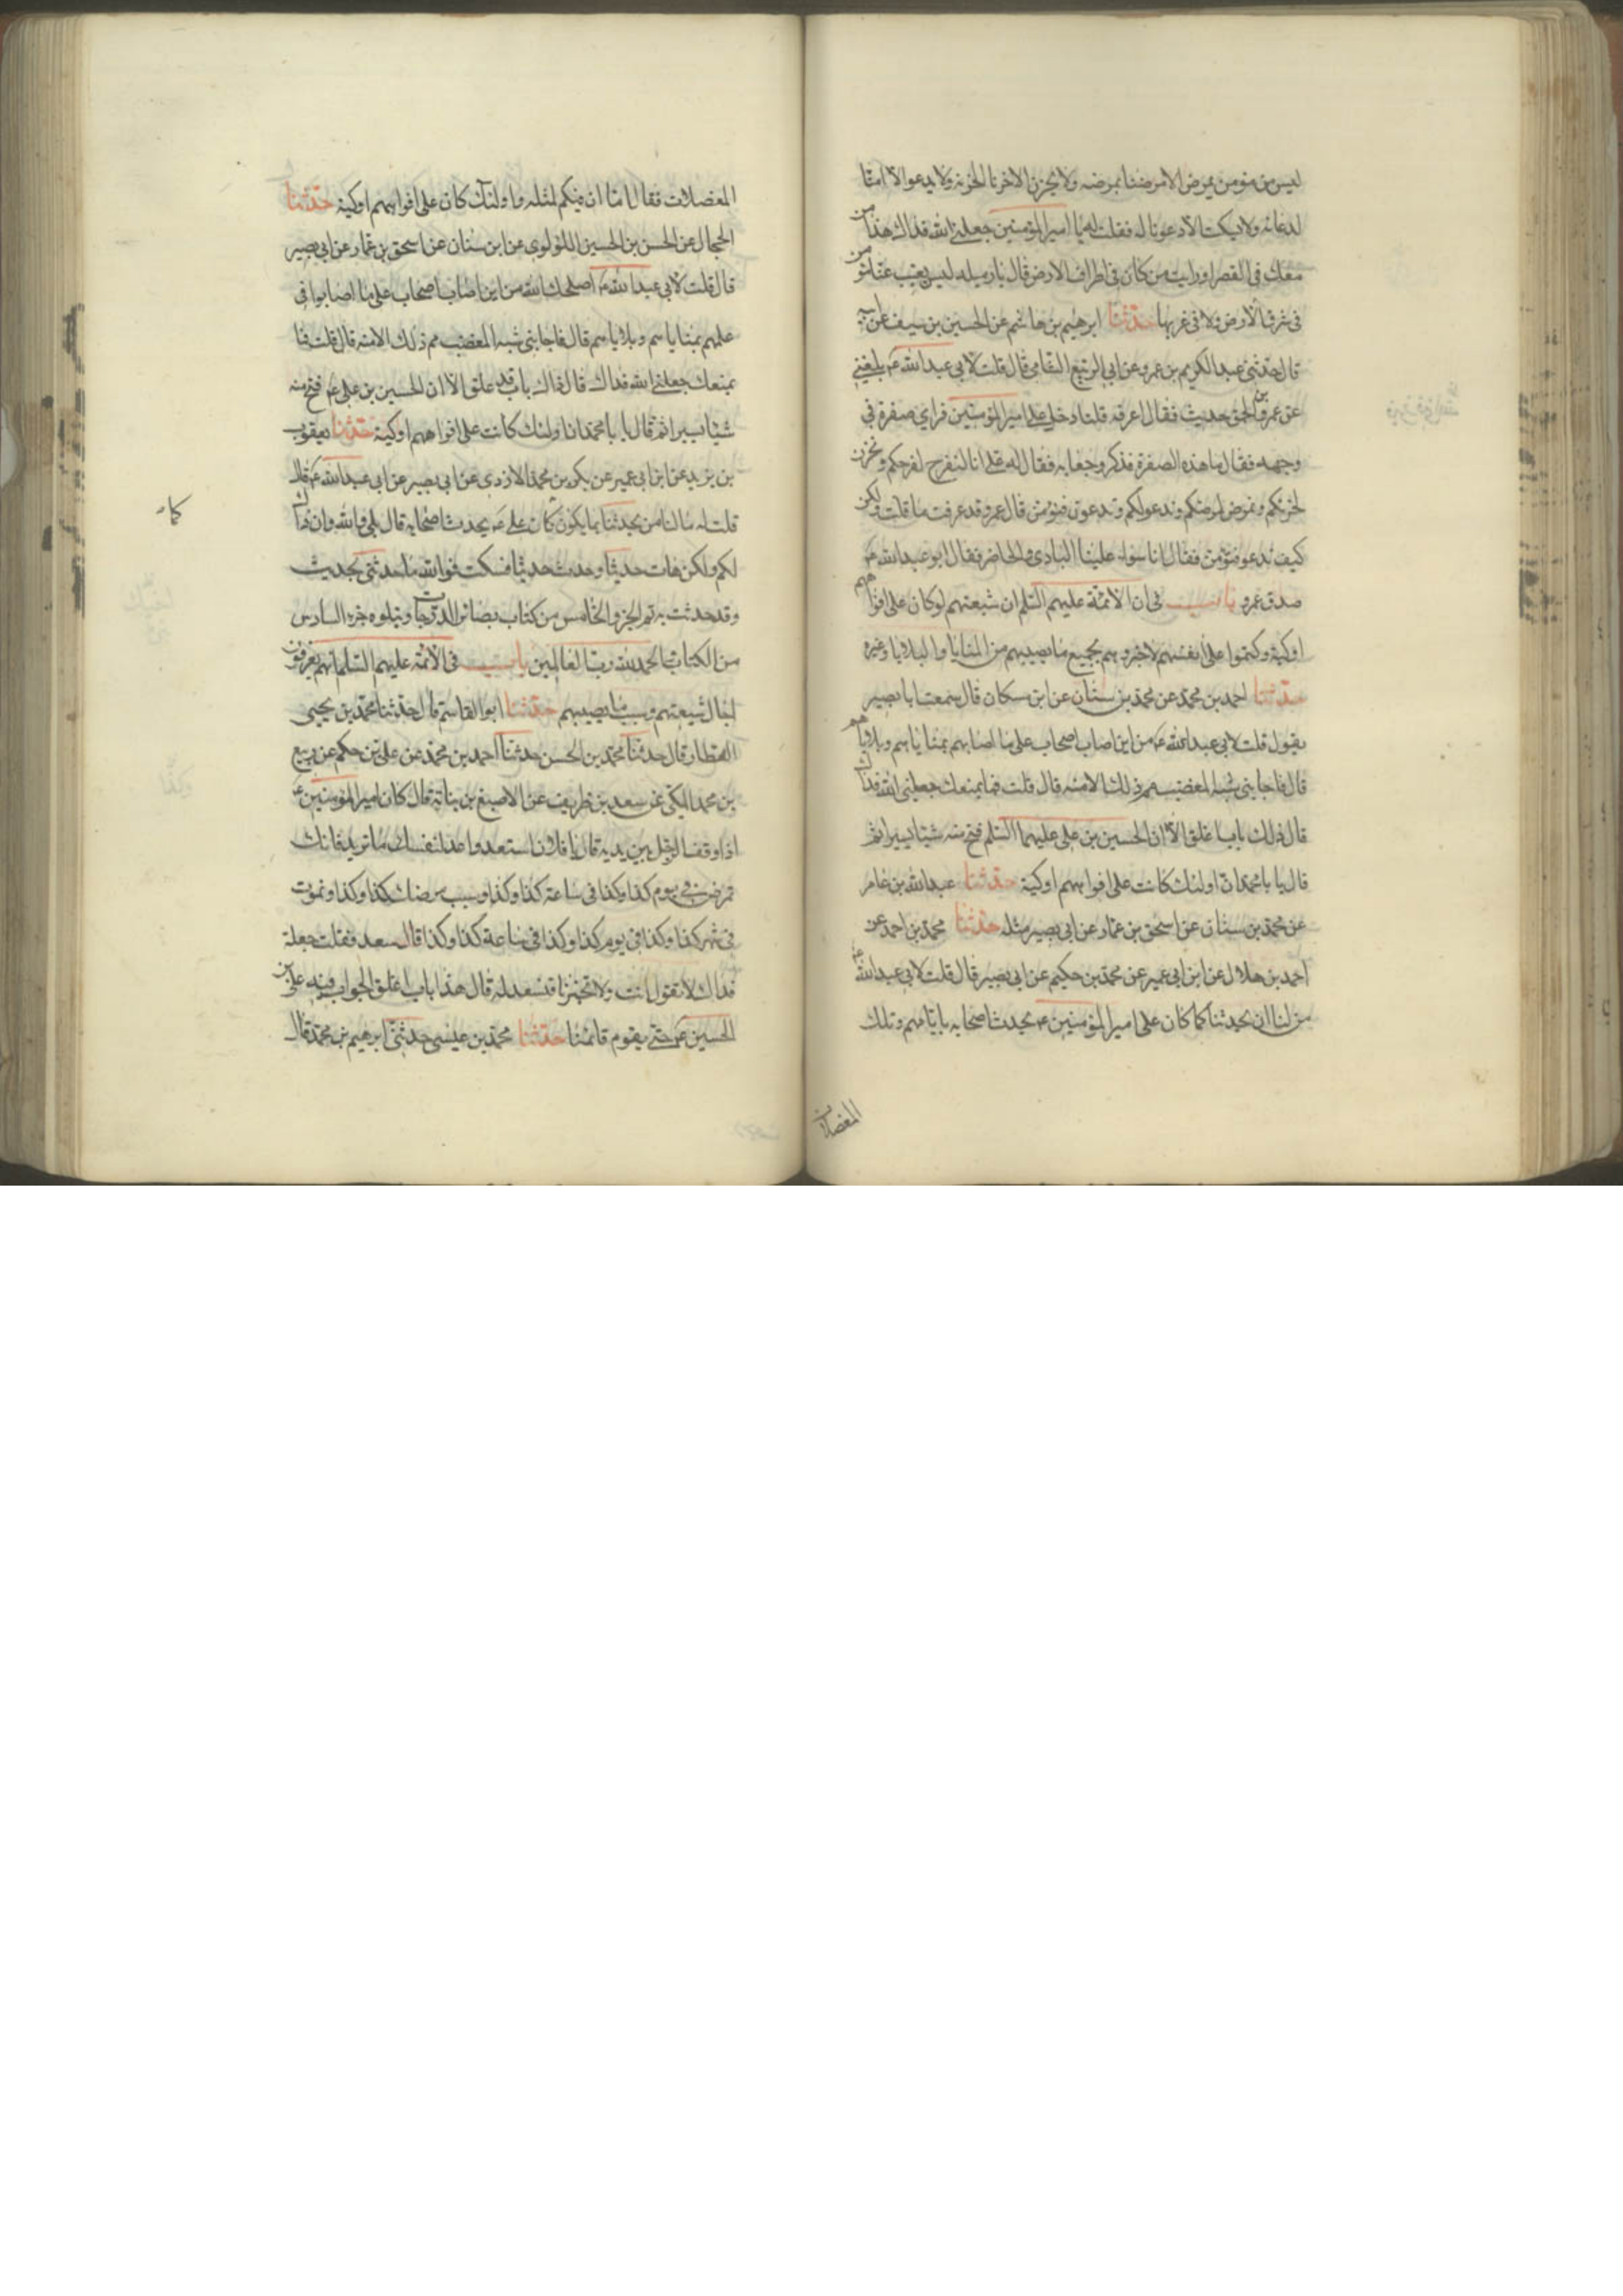 ليس من مؤمن يمرض الا مرضنا بمرضه ولا يحزن الا حزنا لحزنه ولا يدعو الا امنا
لدعائه ولا يسكت الا دعونا له فقلت له يا امير المؤمنين جعلني الله فداك هذا لمن
معك في القصر ارايت من كان في اطراف الارض قال يا رميله ليس يغيب عنا مؤمن
في شرق الارض ولا في غربها حدثنا ابرهيم بن هاشم عن الحسين بن سيف عن ابيه
قال حدثني عبد الكريم بن عمرو عن ابي الربيع الشامي قال قلت لابي عبد الله ع بلغني
عن عمرو بن الحمق حديث فقال اعرفه قلت دخل على امير المؤمنين فراى صفرة في
وجهه فقال ما هذه الصفرة فذكر وجعا به فقال له على انا لنفرح لفرحكم ونحزن
لحزنكم ونمرض لمرضكم وندعو لكم وتدعون فنؤمن قال عمرو قد عرفت ما قلت ولكن
كيف ندعو فتؤمن فقال انا سواء علينا البادى والحاضر فقال ابو عبد الله ع
صدق عمرو باب في ان الائمة عليهم السلم ان شيعتهم لو كان على افواههم
اوكية وكتموا على انفسهم لاخبروهم بجميع ما يصيبهم من المنايا والبلايا وغيره
حدثنا احمد بن محمد عن محمد بن سنان عن ابن مسكان قال سمعت ابا بصير
يقول قلت لابي عبد الله ع من اين اصاب اصحاب على ما اصابهم بمناياهم وبلاياهم
قال فاجابني شبه المغضب مم ذلك الا منه قال قلت فما يمنعك جعلني الله فداك
قال ذلك باب اغلق الا ان الحسين بن على عليهما السلم فتح منه شيئا يسيرا ثم
قال يا با محمد ان اولئك كانت على افواههم اوكية حدثنا عبد الله بن عامر
عن محمد بن سنان عن اسحق بن عمار عن ابي بصير مثله حدثنا محمد بن احمد عن
احمد بن هلال عن ابن ابي عمير عن محمد بن حكيم عن ابي بصير قال قلت لابي عبد الله ع
من لنا ان يحدثنا كما كان على امير المؤمنين ع يحدث اصحابه بايامهم وتلك
المعضلات
المعضلات فقال اما ان فيكم لمثله واولئك كان على افواههم اوكية حدثنا
الحجال عن الحسن بن الحسين اللؤلوى عن ابن سنان عن اسحق بن عمار عن ابي بصير
قال قلت لابي عبد الله ع اصلحك الله من اين اصاب اصحاب على ما اصابوا في
علمهم بمناياهم وبلاياهم قال فاجابني شبه المغضب مم ذلك الا منه قال قلت فما
يمنعك جعلني الله فداك قال ذاك باب قد غلق الا ان الحسين بن على ع فتح منه
شيئا يسيرا ثم قال يا با محمد ان اولئك كانت على افواههم اوكية حدثنا يعقوب
بن يزيد عن ابن ابي عمير عن بكر بن محمد الازدى عن ابي بصير عن ابي عبد الله ع قال
قلت له ما لنا من يحدثنا بما يكون كما كان على ع يحدث اصحابه قال بلى والله وان ذاك
لكم ولكن هات حديثا واحدا حدثتكم فسكت فوالله ما حدثني بحديث
وقد حدثت به تم الجزو الخامس من كتاب بصائر الدرجات ويتلوه جزء السادس
من الكتاب الحمد لله رب العالمين باب في الائمة عليهم السلم انهم يعرفون
اجال شيعتهم وسبب ما يصيبهم حدثنا ابو القاسم قال حدثنا محمد بن يحيى
العطار قال حدثنا محمد بن الحسن حدثنا احمد بن محمد عن على بن حكم عن ربيع
بن محمد المكى عن سعد بن ظريف عن الاصبغ بن نباتة قال كان امير المؤمنين ع
اذا وقف الرجل بين يديه قال يا فلان استعد واعد لنفسك ما تريد فانك
تمرض في يوم كذا وكذا في ساعة كذا وكذا وسبب مرضك كذا وكذا وتموت
في شهر كذا وكذا في يوم كذا وكذا في ساعة كذا وكذا قال سعد فقلت جعلت
فداك لا تقول انت ولا تخبرنا فنستعد له قال هذا باب اغلق الجواب فيه على بن
الحسين ع حتى يقوم قائمنا حدثنا محمد بن عيسى حدثني ابرهيم بن محمد قال